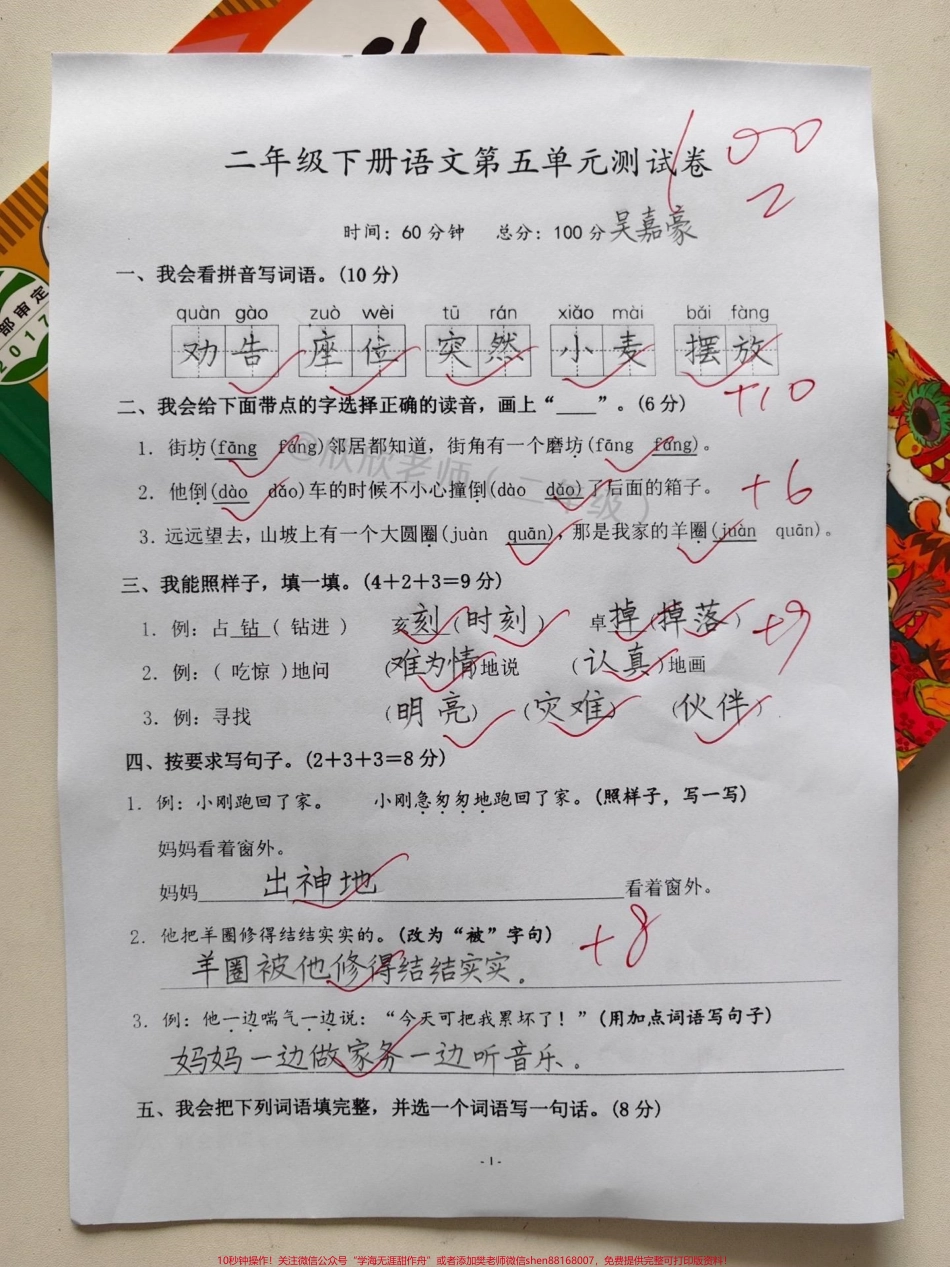 部审定
2017
100
2
二年级下册语文第五单元测试卷
时间：60分钟 总分：100分 吴嘉豪
一、我会看拼音写词语。(10分)
quàn gào zuò wèi tū rán xiǎo mài bǎi fàng
劝告 座位 突然 小麦 摆放
+10
二、我会给下面带点的字选择正确的读音，画上“____”。(6分)
1. 街坊(fāng fáng)邻居都知道，街角有一个磨坊(fāng fáng)。
2. 他倒(dào dǎo)车的时候不小心撞倒(dào dǎo)了后面的箱子。
+6
3. 远远望去，山坡上有一个大圆圈(juàn quān)，那是我家的羊圈(juàn quān)。
@欣欣老师（二年级）
三、我能照样子，填一填。(4+2+3=9分)
1. 例：占 钻 ( 钻进 ) 亥 刻 (时刻) 卓 掉 (掉落)
+9
2. 例：( 吃惊 )地问 (难为情)地说 (认真)地画
3. 例：寻找 (明亮) (灾难) (伙伴)
四、按要求写句子。(2+3+3=8分)
1. 例：小刚跑回了家。 小刚急匆匆地跑回了家。(照样子，写一写)
妈妈看着窗外。
妈妈 出神地 看着窗外。
2. 他把羊圈修得结结实实的。(改为“被”字句)
+8
羊圈被他修得结结实实。
3. 例：他一边喘气一边说：“今天可把我累坏了！”(用加点词语写句子)
妈妈一边做家务一边听音乐。
五、我会把下列词语填完整，并选一个词语写一句话。(8分)
- 1 -
10秒钟操作！关注微信公众号“学海无涯甜作舟”或者添加樊老师微信shen88168007，免费提供完整可打印版资料！